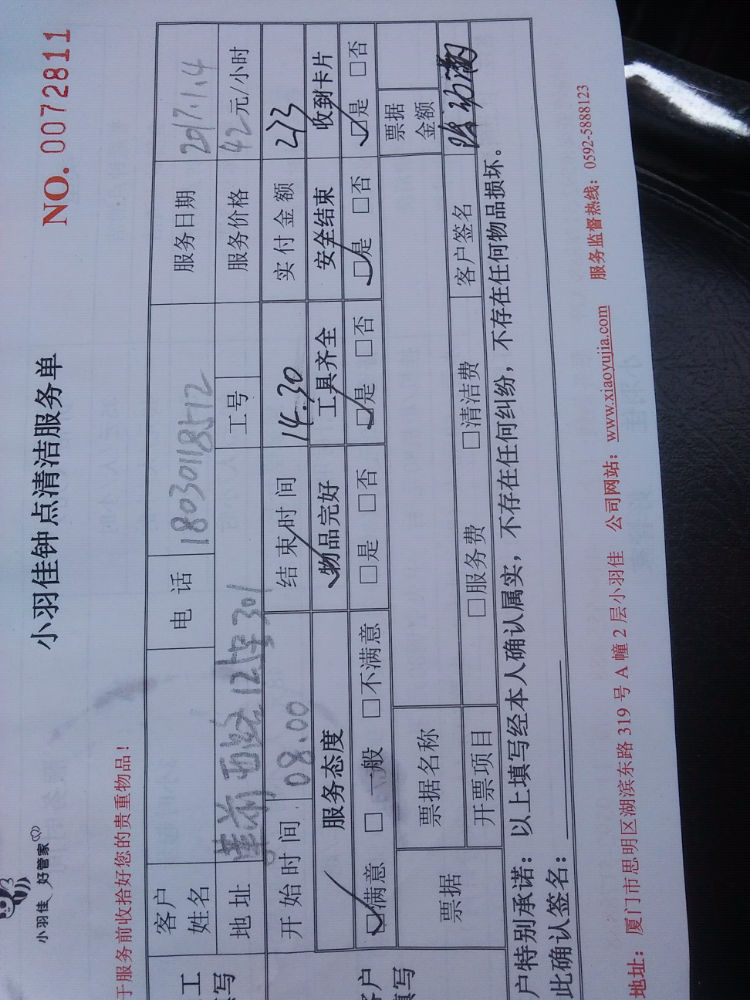 小羽佳 好管家
小羽佳钟点清洁服务单
NO. 0072811
于服务前收拾好您的贵重物品！
工
写
客户姓名 电 话 18030118512 服务日期 2017.1.4
地 址 莲前西路125号301 工号 服务价格 42元/小时
开 始 时 间 08.00 结 束 时 间 14.30 实 付 金 额 223
服务态度 物品完好 工具齐全 安全结束 收到卡片
☑满意 □ 一般 □不满意 □是 □否 ☑是 □否 ☑是 □否 ☑是 □否
户
填写
票据 票据名称 票据金额
开票项目 □服务费 □清洁费 客户签名
户特别承诺：以上填写经本人确认属实，不存在任何纠纷，不存在任何物品损坏。
此确认签名：
地址：厦门市思明区湖滨东路 319 号 A 幢 2 层小羽佳 公司网站：www.xiaoyujia.com 服务监督热线：0592-5888123